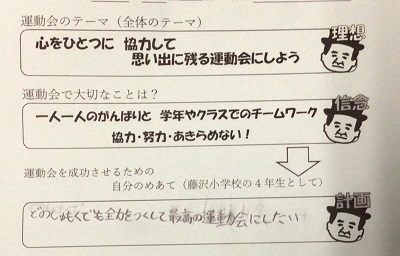 運動会のテーマ（全体のテーマ）
心をひとつに 協力して
思い出に残る運動会にしよう
理想
運動会で大切なことは？
一人一人のがんばりと 学年やクラスでのチームワーク
協力・努力・あきらめない！
信念
運動会を成功させるための
自分のめあて（藤沢小学校の４年生として）
どのしゅもくでも全力をつくして最高の運動会にしたい
計画